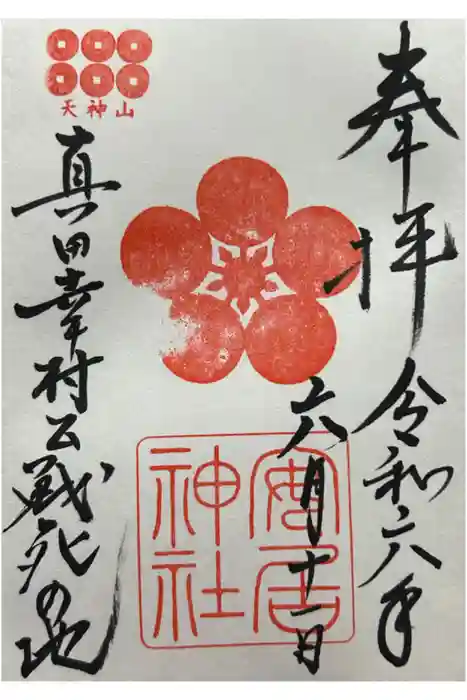 奉拝
令和六年
六月十一日
安居
神社
天神山
真田幸村公戦死の地